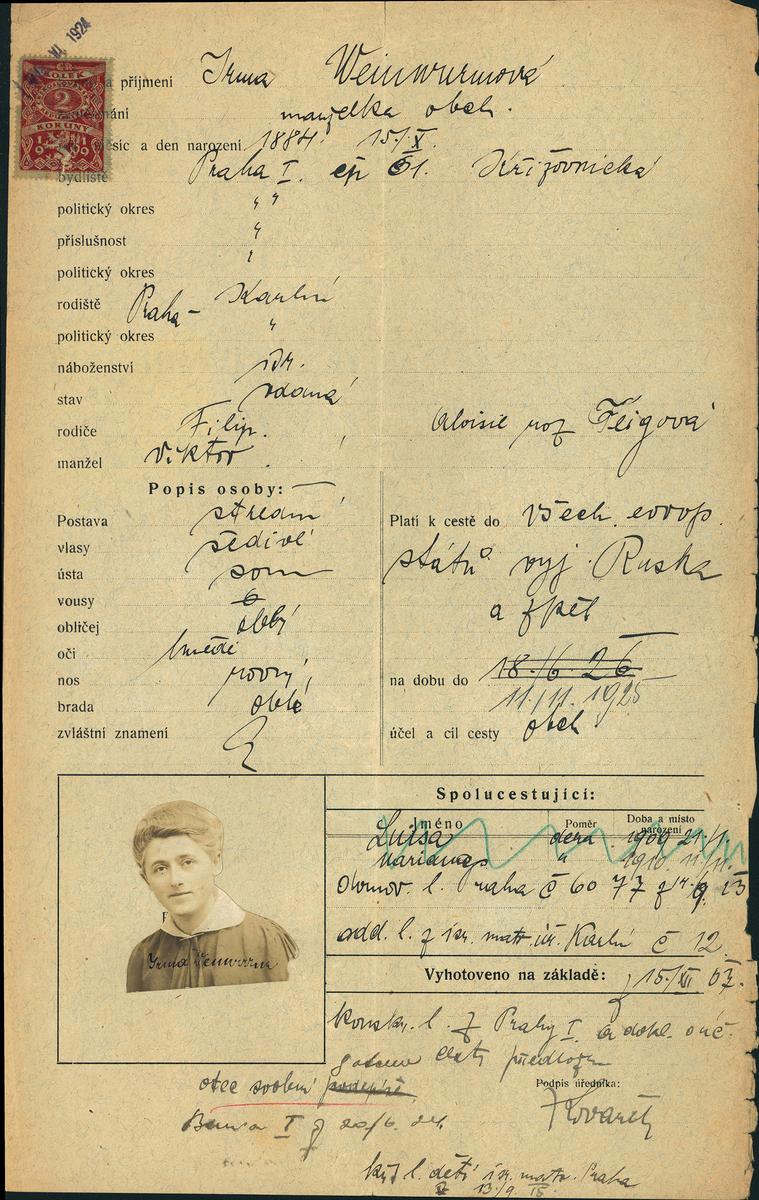 VI. 1924
ČR
KOLEK
2
KORUNY
1919
a příjmení Irma Weinwurmová
manželka obch.
měsíc a den narození 1884. 15./X.
bydliště Praha I. čp 61. Křižovnická
politický okres " "
příslušnost "
politický okres "
rodiště Praha - Karlín
politický okres "
náboženství isr.
stav vdaná
rodiče Filip. Aloisie roz Feigová
manžel Viktor.
Popis osoby:
Postava střední
vlasy šedivé
ústa soum
vousy
obličej oblý
oči hnědé
nos rovný
brada oblá
zvláštní znamení
Platí k cestě do všech. evrop.
států vyj. Ruska
a zpět
na dobu do 18./6. 26
11./11. 1925
účel a cíl cesty obch
Spolucestující:
Jméno Poměr Doba a místo narození
Luisa dcera 1909 21/1
" 1910. 11./11.
Domov. l. Praha č 6077 z 14./9. 13
odd. l. z isr. matr. úř. Karlín č 12
Vyhotoveno na základě: 15./XI 07.
konskr. l. z Prahy I. a dokl.
předloz
Podpis úředníka:
Kovařík
Irma Weinwurm
otec svolení podepíše
I 20/6. 24.
křt l. dětí isr. matr. Praha
13./9. 15.